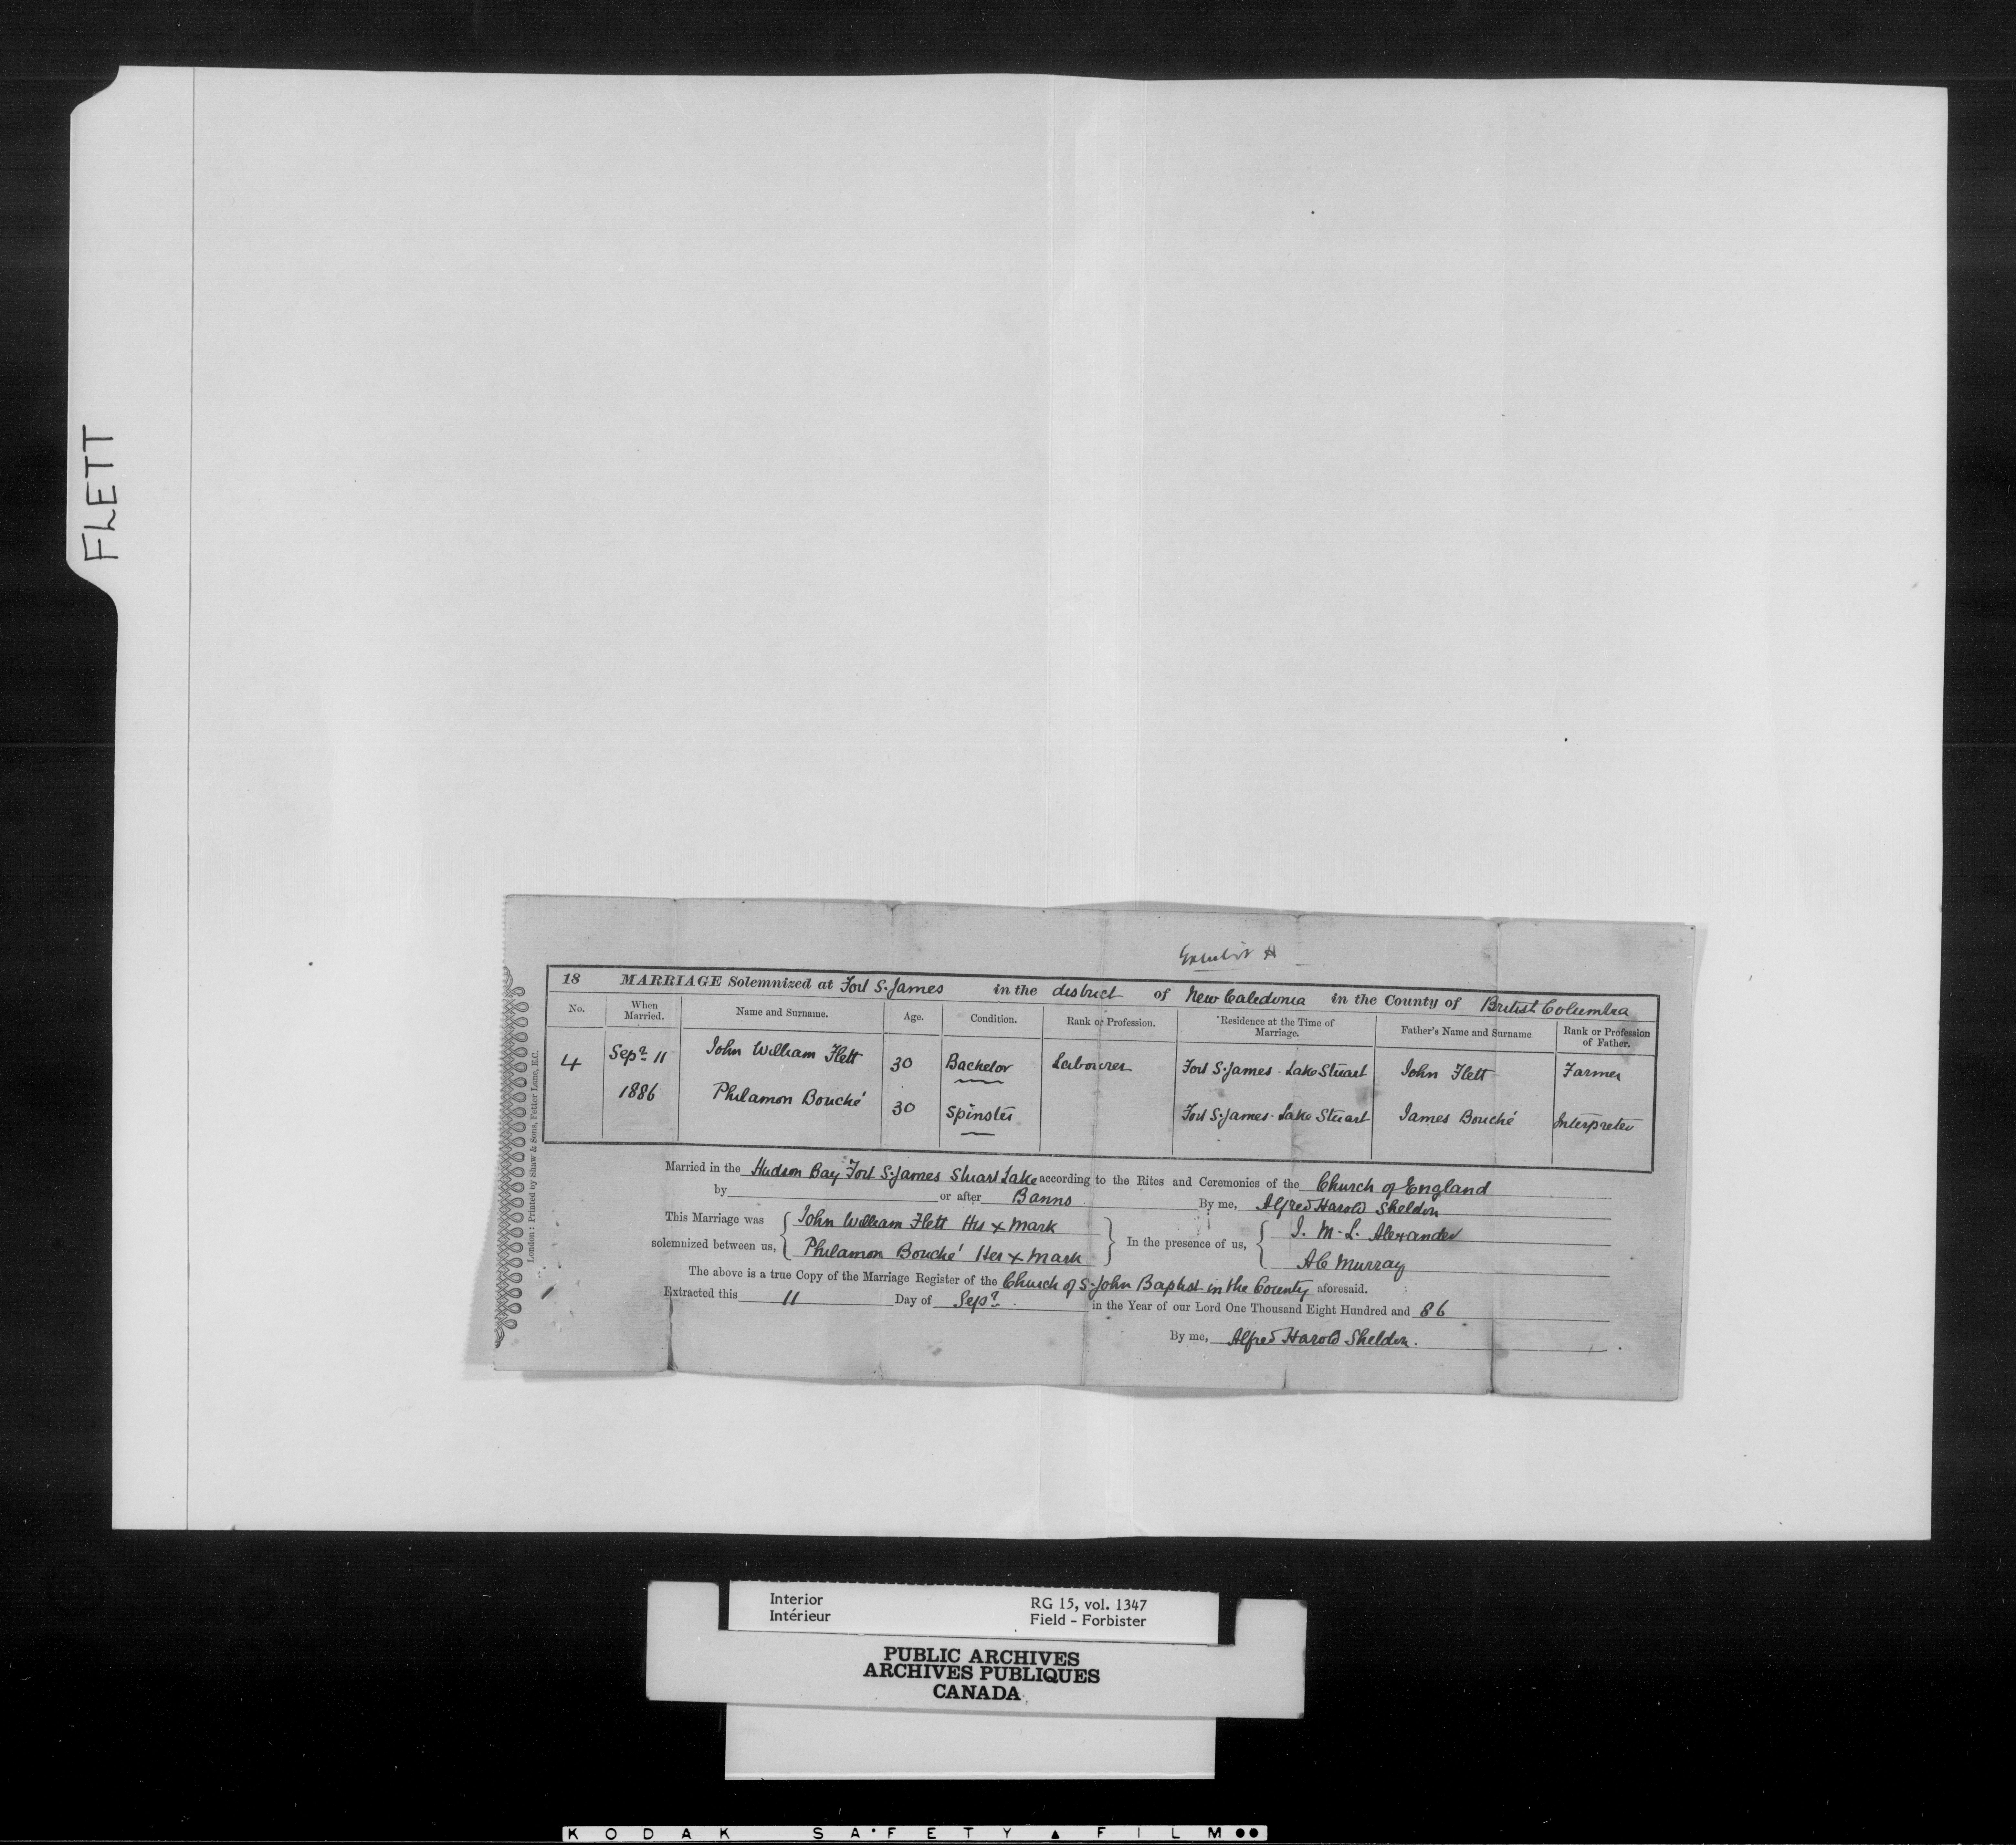 FLETT
Exhibit A
18 MARRIAGE Solemnized at Fort S. James in the district of New Caledonia in the County of British Columbia
No. When Married. Name and Surname. Age. Condition. Rank or Profession. Residence at the Time of Marriage. Father's Name and Surname Rank or Profession of Father.
4 Sepr 11 John William Flett 30 Bachelor Labourer Fort S. James - Lake Stuart John Flett Farmer
1886 Philamon Bouché 30 Spinster Fort S. James - Lake Stuart James Bouché Interpreter
Married in the Hudson Bay Fort S. James Stuart Lake according to the Rites and Ceremonies of the Church of England
by or after Banns By me, Alfred Harold Sheldon
This Marriage was solemnized between us, John William Flett His x Mark In the presence of us, J. M. L. Alexander
Philamon Bouché Her x Mark A C Murray
The above is a true Copy of the Marriage Register of the Church of S. John Baptist in the County aforesaid.
Extracted this 11 Day of Sepr in the Year of our Lord One Thousand Eight Hundred and 86
By me, Alfred Harold Sheldon.
London: Printed by Shaw & Sons, Fetter Lane, E.C.
Interior RG 15, vol. 1347
Intérieur Field - Forbister
PUBLIC ARCHIVES
ARCHIVES PUBLIQUES
CANADA
KODAK SAFETY FILM